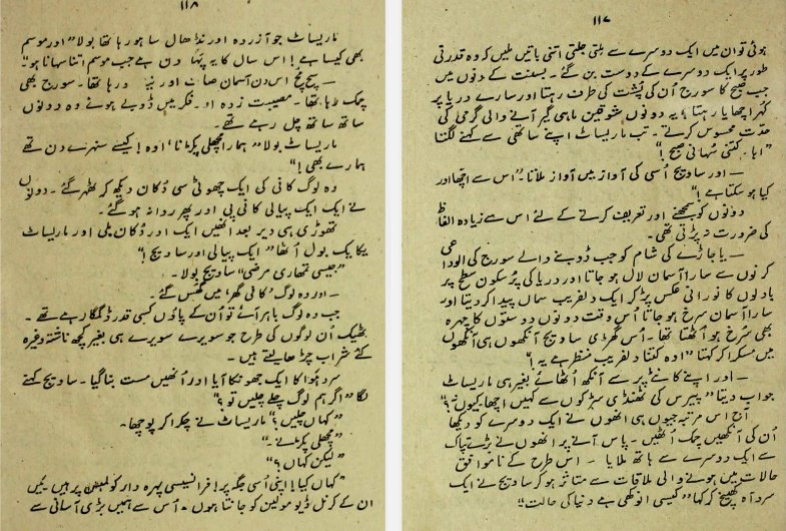 ۱۱۷
ہوئی تو ان میں ایک دوسرے سے ملتی جلتی اتنی باتیں ملیں کہ وہ قدرتی
طور پر ایک دوسرے کے دوست بن گئے۔ بسنت کے دنوں میں
جب صبح کا سورج اُن کی پُشت کی طرف رہتا اور سارے دریا پر
کُہرا چھایا رہتا، یہ دونوں شوقین ماہی گیر آنے والی گرمی کی
حدّت محسوس کرتے۔ تب ماریساٹ اپنے ساتھی سے کہنے لگتا
”اہا۔ کتنی سُہانی صبح!“
— اور ساویج اُسی کی آواز میں آواز ملاتا۔ ”اس سے اچھا اور
کیا ہو سکتا ہے!“
دونوں کو سمجھنے اور تعریف کرنے کے لئے اس سے زیادہ الفاظ
کی ضرورت نہ پڑتی تھی۔
— یا جاڑے کی شام کو جب ڈوبنے والے سورج کی الوداعی
کرنوں سے سارا آسمان لال ہو جاتا اور دریا کی پُرسکون سطح پر
بادلوں کا نورانی عکس پڑ کر ایک دلفریب سماں پیدا کر دیتا اور
سارا آسمان سرخ ہو جاتا اُس وقت دونوں دوستوں کا چہرہ
بھی سُرخ ہو اُٹھتا تھا۔ اُس گھڑی ساویج آنکھوں ہی آنکھوں
میں مسکرا کر کہتا ”اوہ کتنا دلفریب منظر ہے یہ!“
— اور اپنے کانٹے پر سے آنکھ اُٹھائے بغیر ہی ماریساٹ
جواب دیتا ”پیرس کی ٹھنڈی سڑکوں سے کہیں اچھا کیوں؟“
آج اس مرتبہ جیوں ہی انھوں نے ایک دوسرے کو دیکھا
اُن کی آنکھیں چمک اُٹھیں۔ پاس آنے پر انھوں نے بڑے تپاک
سے ایک دوسرے سے ہاتھ ملایا — اس طرح کے ناموافق
حالات میں ہونے والی ملاقات سے متاثر ہو کر ساویج نے ایک
سرد آہ کھینچ کر کہا ”کیسی انوکھی ہے دنیا کی حالت“
۱۱۸
ماریساٹ جو آزردہ اور نڈھال سا ہو رہا تھا بولا ”اور موسم
بھی کیسا ہے! اس سال کا یہ پہلا دن ہے جب موسم اتنا سہانا ہو“
— سچ مچ اس دن آسمان صاف اور نیلا ہو رہا تھا۔ سورج بھی
چمک رہا تھا۔ مصیبت زدہ اور فکر میں ڈوبے ہوئے وہ دونوں
ساتھ ساتھ چل رہے تھے۔
ماریساٹ بولا ”ہمارا مچھلی پکڑنا، اوہ! کیسے سنہرے دن تھے
ہمارے بھی!“
وہ لوگ کافی کی ایک چھوٹی سی دُکان دیکھ کر ٹھہر گئے۔ دونوں
نے ایک ایک پیالی کافی پی اور پھر روانہ ہو گئے۔
تھوڑی ہی دیر بعد انھیں ایک اور دُکان ملی اور ماریساٹ
یکایک بول اُٹھا ”ایک پیالی اور ساویج!“
”جیسی تمھاری مرضی“ ساویج بولا۔
— اور وہ لوگ ’کافی گھر‘ میں گھُس گئے۔
جب وہ لوگ باہر آئے تو اُن کے پاؤں کسی قدر ڈگمگا رہے تھے۔
ٹھیک اُن لوگوں کی طرح جو سویرے سویرے ہی بغیر کچھ ناشتہ وغیرہ
کئے شراب چڑھا لیتے ہیں۔
سرد ہَوا کا ایک جھونکا آیا اور اُنھیں مست بنا گیا۔ ساویج کہنے
لگا ”اگر ہم لوگ چلے چلیں تو؟“
”کہاں چلیں؟“ ماریساٹ نے چکرا کر پوچھا۔
”مچھلی پکڑنے۔“
”لیکن کہاں؟“
”کہاں کیا! اپنی اُسی جگہ پر! فرانسیسی پہرہ دار کولمبس پر ہیں۔ میں
ان کے کرنل ڈیو مولین کو جانتا ہوں۔ اُس سے ہمیں بڑی آسانی سے